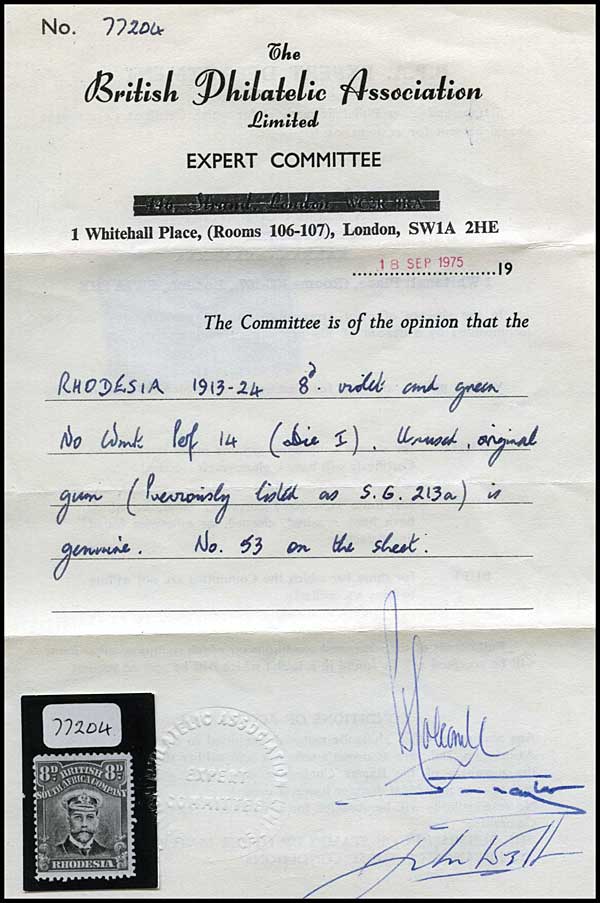 No. 77204
The
British Philatelic Association
Limited
EXPERT COMMITTEE
1 Whitehall Place, (Rooms 106-107), London, SW1A 2HE
18 SEP 1975 19
The Committee is of the opinion that the
RHODESIA 1913-24 8d. violet and green
No Wmk Perf 14 (Die I). Unused, original
gum (Previously listed as S.G. 213a) is
genuine. No. 53 on the sheet.
77204
8D. BRITISH 8D.
SOUTH AFRICA COMPANY
RHODESIA
PHILATELIC ASSOCIATION
EXPERT
COMMITTEE